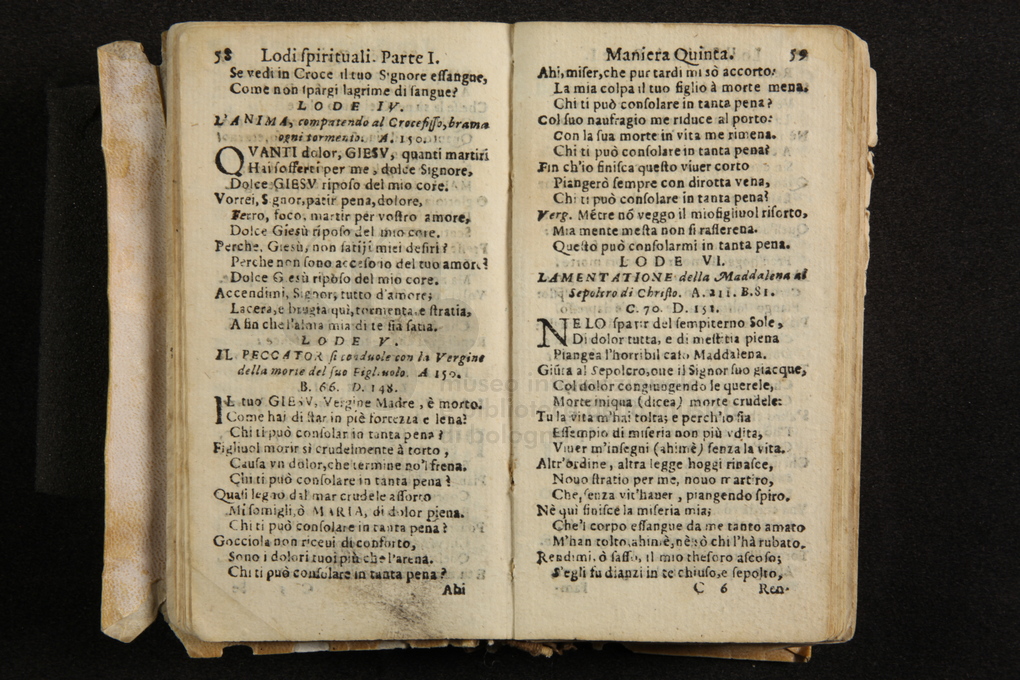 58 Lodi spirituali. Parte I.
Se vedi in Croce il tuo Signore essangue,
Come non spargi lagrime di sangue?
LODE IV.
L'ANIMA, compatendo al Crocefisso, brama
ogni tormento. A. 150.
QVANTI dolor, GIESV, quanti martiri
Hai sofferti per me, dolce Signore,
Dolce GIESV riposo del mio core.
Vorrei, Signor, patir pena, dolore,
Ferro, foco, martir per vostro amore,
Dolce Giesù riposo del mio core.
Perche, Giesù, non satij i miei desiri?
Perche non sono acceso io del tuo amore?
Dolce Giesù riposo del mio core.
Accendimi, Signor, tutto d'amore;
Lacera, e brugia qui, tormenta, e stratia,
A fin che l'alma mia di te sia satia.
LODE V.
IL PECCATOR si conduole con la Vergine
della morte del suo Figliuolo. A 150.
B. 66. D. 148.
IL tuo GIESV, Vergine Madre, è morto.
Come hai di star in piè fortezza e lena?
Chi ti può consolar in tanta pena?
Figliuol morir si crudelmente à torto,
Causa vn dolor, che termine no'l frena.
Chi ti può consolare in tanta pena?
Quasi legno dal mar crudele assorto
Mi somigli, ò MARIA, di dolor piena.
Chi ti può consolare in tanta pena?
Gocciola non riceui di conforto,
Sono i dolori tuoi più che l'arena.
Chi ti può consolare in tanta pena?
Ahi
Maniera Quinta. 59
Ahi, miser, che pur tardi mi sò accorto:
La mia colpa il tuo figlio à morte mena.
Chi ti può consolare in tanta pena?
Col suo naufragio me riduce al porto:
Con la sua morte in vita me rimena.
Chi ti può consolare in tanta pena?
Fin ch'io finisca questo viuer corto
Piangerò sempre con dirotta vena,
Chi ti può consolare in tanta pena?
Verg. Mẽtre nõ veggo il mio figliuol risorto,
Mia mente mesta non si rasserena.
Questo può consolarmi in tanta pena.
LODE VI.
LAMENTATIONE della Maddalena al
Sepolcro di Christo. A. 211. B. 81.
C. 70. D. 151.
NE LO sparir del sempiterno Sole,
Di dolor tutta, e di mestitia piena
Piangea l'horribil caso Maddalena.
Giũta al Sepolcro, oue il Signor suo giacque,
Col dolor congiungendo le querele,
Morte iniqua (dicea) morte crudele:
Tu la vita m'hai tolta; e perch'io sia
Essempio di miseria non più vdita,
Viuer m'insegni (ahimè) senza la vita.
Altr'ordine, altra legge hoggi rinasce,
Nouo stratio per me, nouo martiro,
Che, senza vit'hauer, piangendo spiro.
Nè qui finisce la miseria mia;
Che'l corpo essangue da me tanto amato
M'han tolto, ahimè, nè sò chi l'hà rubato.
Rendimi, ò sasso, il mio thesoro ascoso;
S'egli fu dianzi in te chiuso, e sepolto,
C 6 Ren-